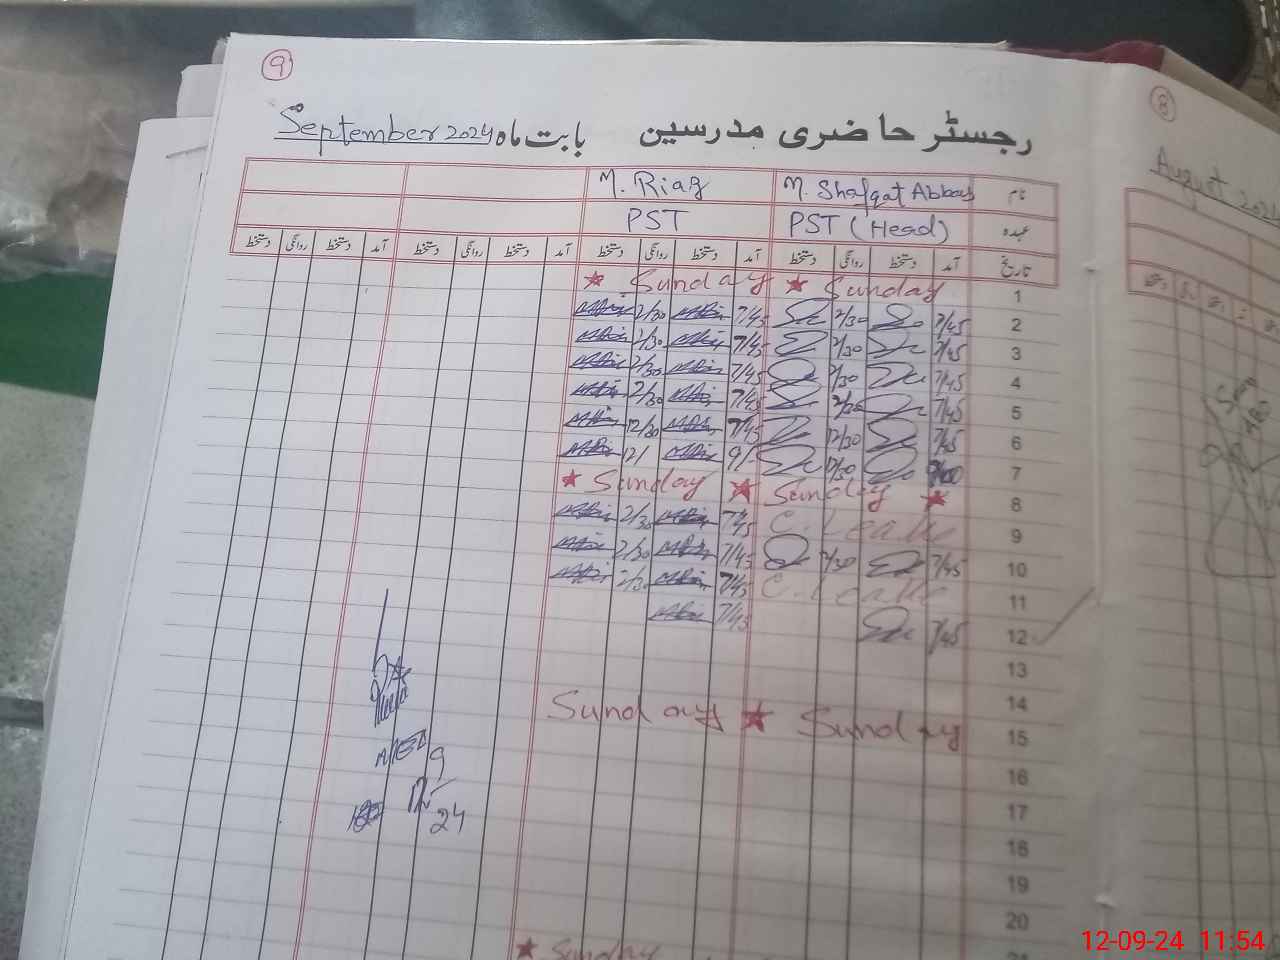 9
رجسٹر حاضری مدرسین بابت ماہ September 2024
نام M. Shafqat Abbas M. Riaz
عہدہ PST (Head) PST
تاریخ آمد دستخط روانگی دستخط آمد دستخط روانگی دستخط آمد دستخط روانگی دستخط آمد دستخط روانگی دستخط
1 Sunday ★ Sunday ★
2 7/45 2/30 7/45 2/30
3 7/45 2/30 7/45 2/30
4 7/45 2/30 7/45 2/30
5 7/45 2/30 7/45 2/30
6 7/45 12/30 7/45 12/30
7 12/30 9/- 12/
8 ★ Sunday ★ Sunday ★
9 C. Leave 7/45 2/30
10 7/45 2/30 7/45 2/30
11 C. Leave 7/45 2/30
12 7/45 7/45
13
14
15 Sunday ★ Sunday
16
17
18
19
20
★ Sunday
9
12
24
8
August 2024
12-09-24 11:54